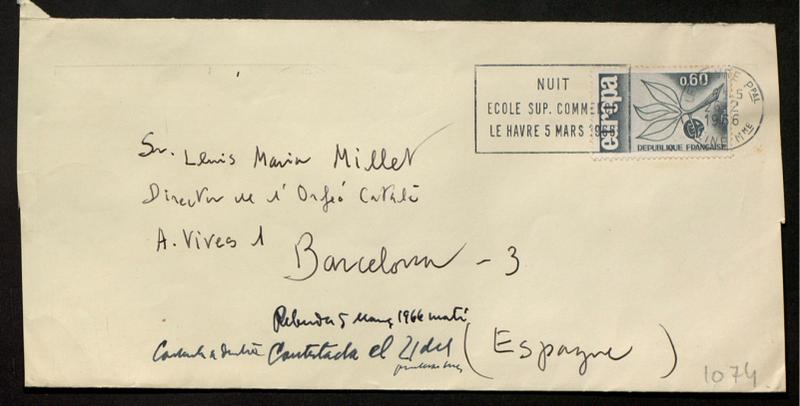 NUIT
ECOLE SUP. COMMERC
LE HAVRE 5 MARS 1966
europa
0,60
REPUBLIQUE FRANÇAISE
PPAL
1966
Sr. Lluis Maria Millet
Director de l'Orfeó Català
A. Vives 1
Barcelona - 3
Rebuda 5 març 1966 matí
Contestada el 21 del
(Espagne)
1074